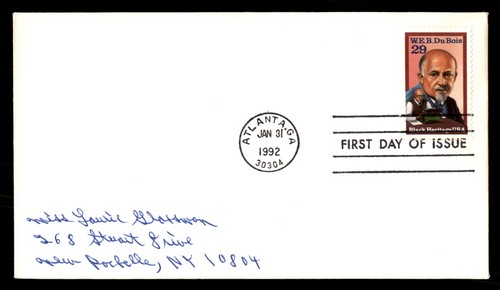 W.E.B. Du Bois
29
Black Heritage USA
ATLANTA, GA
JAN 31
1992
30304
FIRST DAY OF ISSUE
Miss Laurie Glassman
268 Stuart Drive
New Rochelle, NY 10804